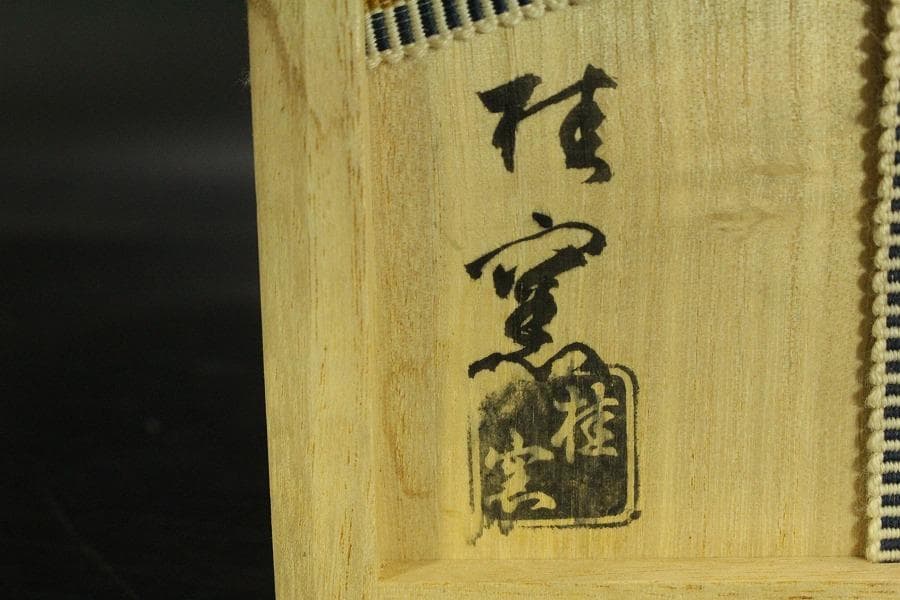 桂窯
桂窯